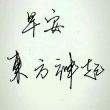 早安
東方神起